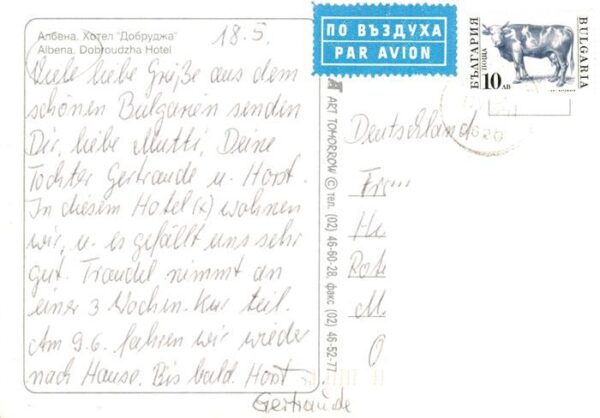 Албена. Хотел "Добруджа"
Albena. Dobroudzha Hotel
18.5.
Viele liebe Grüße aus dem
schönen Bulgarien senden
Dir, liebe Mutti, Deine
Töchter Gertraude u. Horst.
In diesem Hotel (x) wohnen
wir, u. es gefällt uns sehr
gut. Traudel nimmt an
einer 3 Wochen-Kur teil.
Am 9.6. fahren wir wieder
nach Hause. Bis bald. Horst
Gertraude
ART TOMORROW © тел. (02) 46-60-28, факс (02) 46-52-77
ПО ВЪЗДУХА
PAR AVION
БЪЛГАРИЯ
ПОЩА
10 ЛВ
BULGARIA
Deutschland